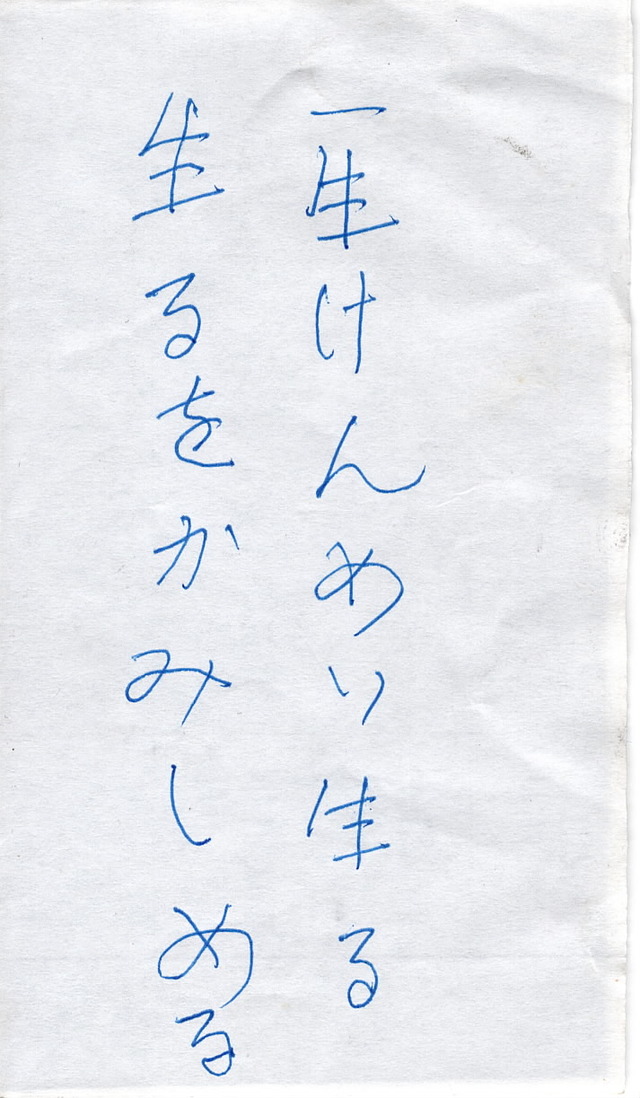 一生けんめい生る
生るをかみしめる